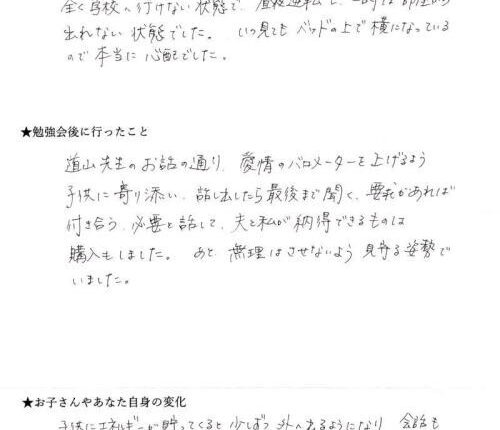 全く学校へ行けない状態で、昼夜逆転し、一時は部屋から
出れない状態でした。 いつ見てもベッドの上で横になっている
ので本当に心配でした。
★勉強会後に行ったこと
道山先生のお話の通り、愛情のバロメーターを上げるよう
子供に寄り添い、話し出したら最後まで聞く、要求があれば
付き合う、必要と話して、夫と私が納得できるものは
購入もしました。 あと、無理はさせないよう見守る姿勢で
いました。
★お子さんやあなた自身の変化
子供にエネルギーが貯ってくると少しずつ外へ出るようになり、会話も